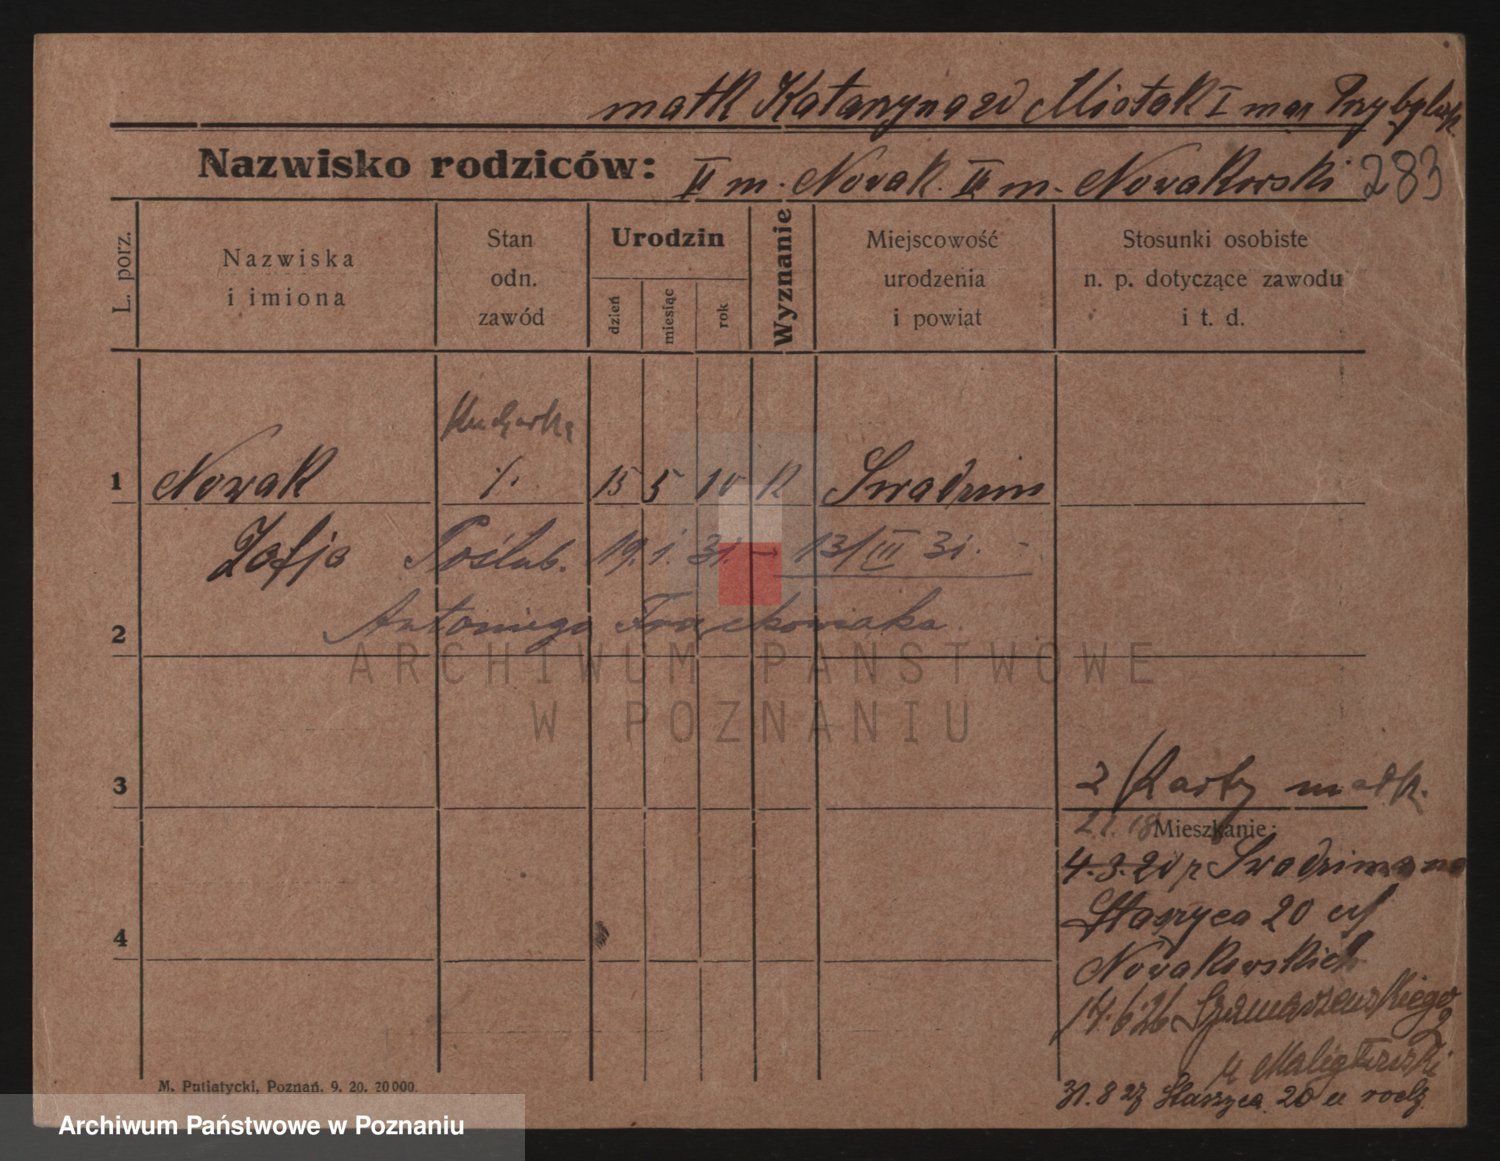 matk Katarzyna zd Miotak I mar Przybylsk
Nazwisko rodziców: II m. Nowak. III m. Nowakowski 283
L. porz.
Nazwiska
i imiona
Stan
odn.
zawód
Urodzin
dzień
miesiąc
rok
Wyznanie
Miejscowość
urodzenia
i powiat
Stosunki osobiste
n. p. dotyczące zawodu
i t. d.
Kucharka
1 Nowak /. 15 5 10 K Swadzim
Zofja Poślub. 19. 1. 31. → 13/III 31. -
2 Antoniego Frąckowiaka.
ARCHIWUM PAŃSTWOWE
W POZNANIU
3
2 Karty matk.
2.1.18 Mieszkanie:
4.3.20 z Swadzima na
Staszyca 20
4
Nowakowskich
14.6.26 Szamarzewskiego
u
31.8.27 Staszyca 20 u rodz.
M. Putiatycki, Poznań. 9. 20. 20000.
Archiwum Państwowe w Poznaniu